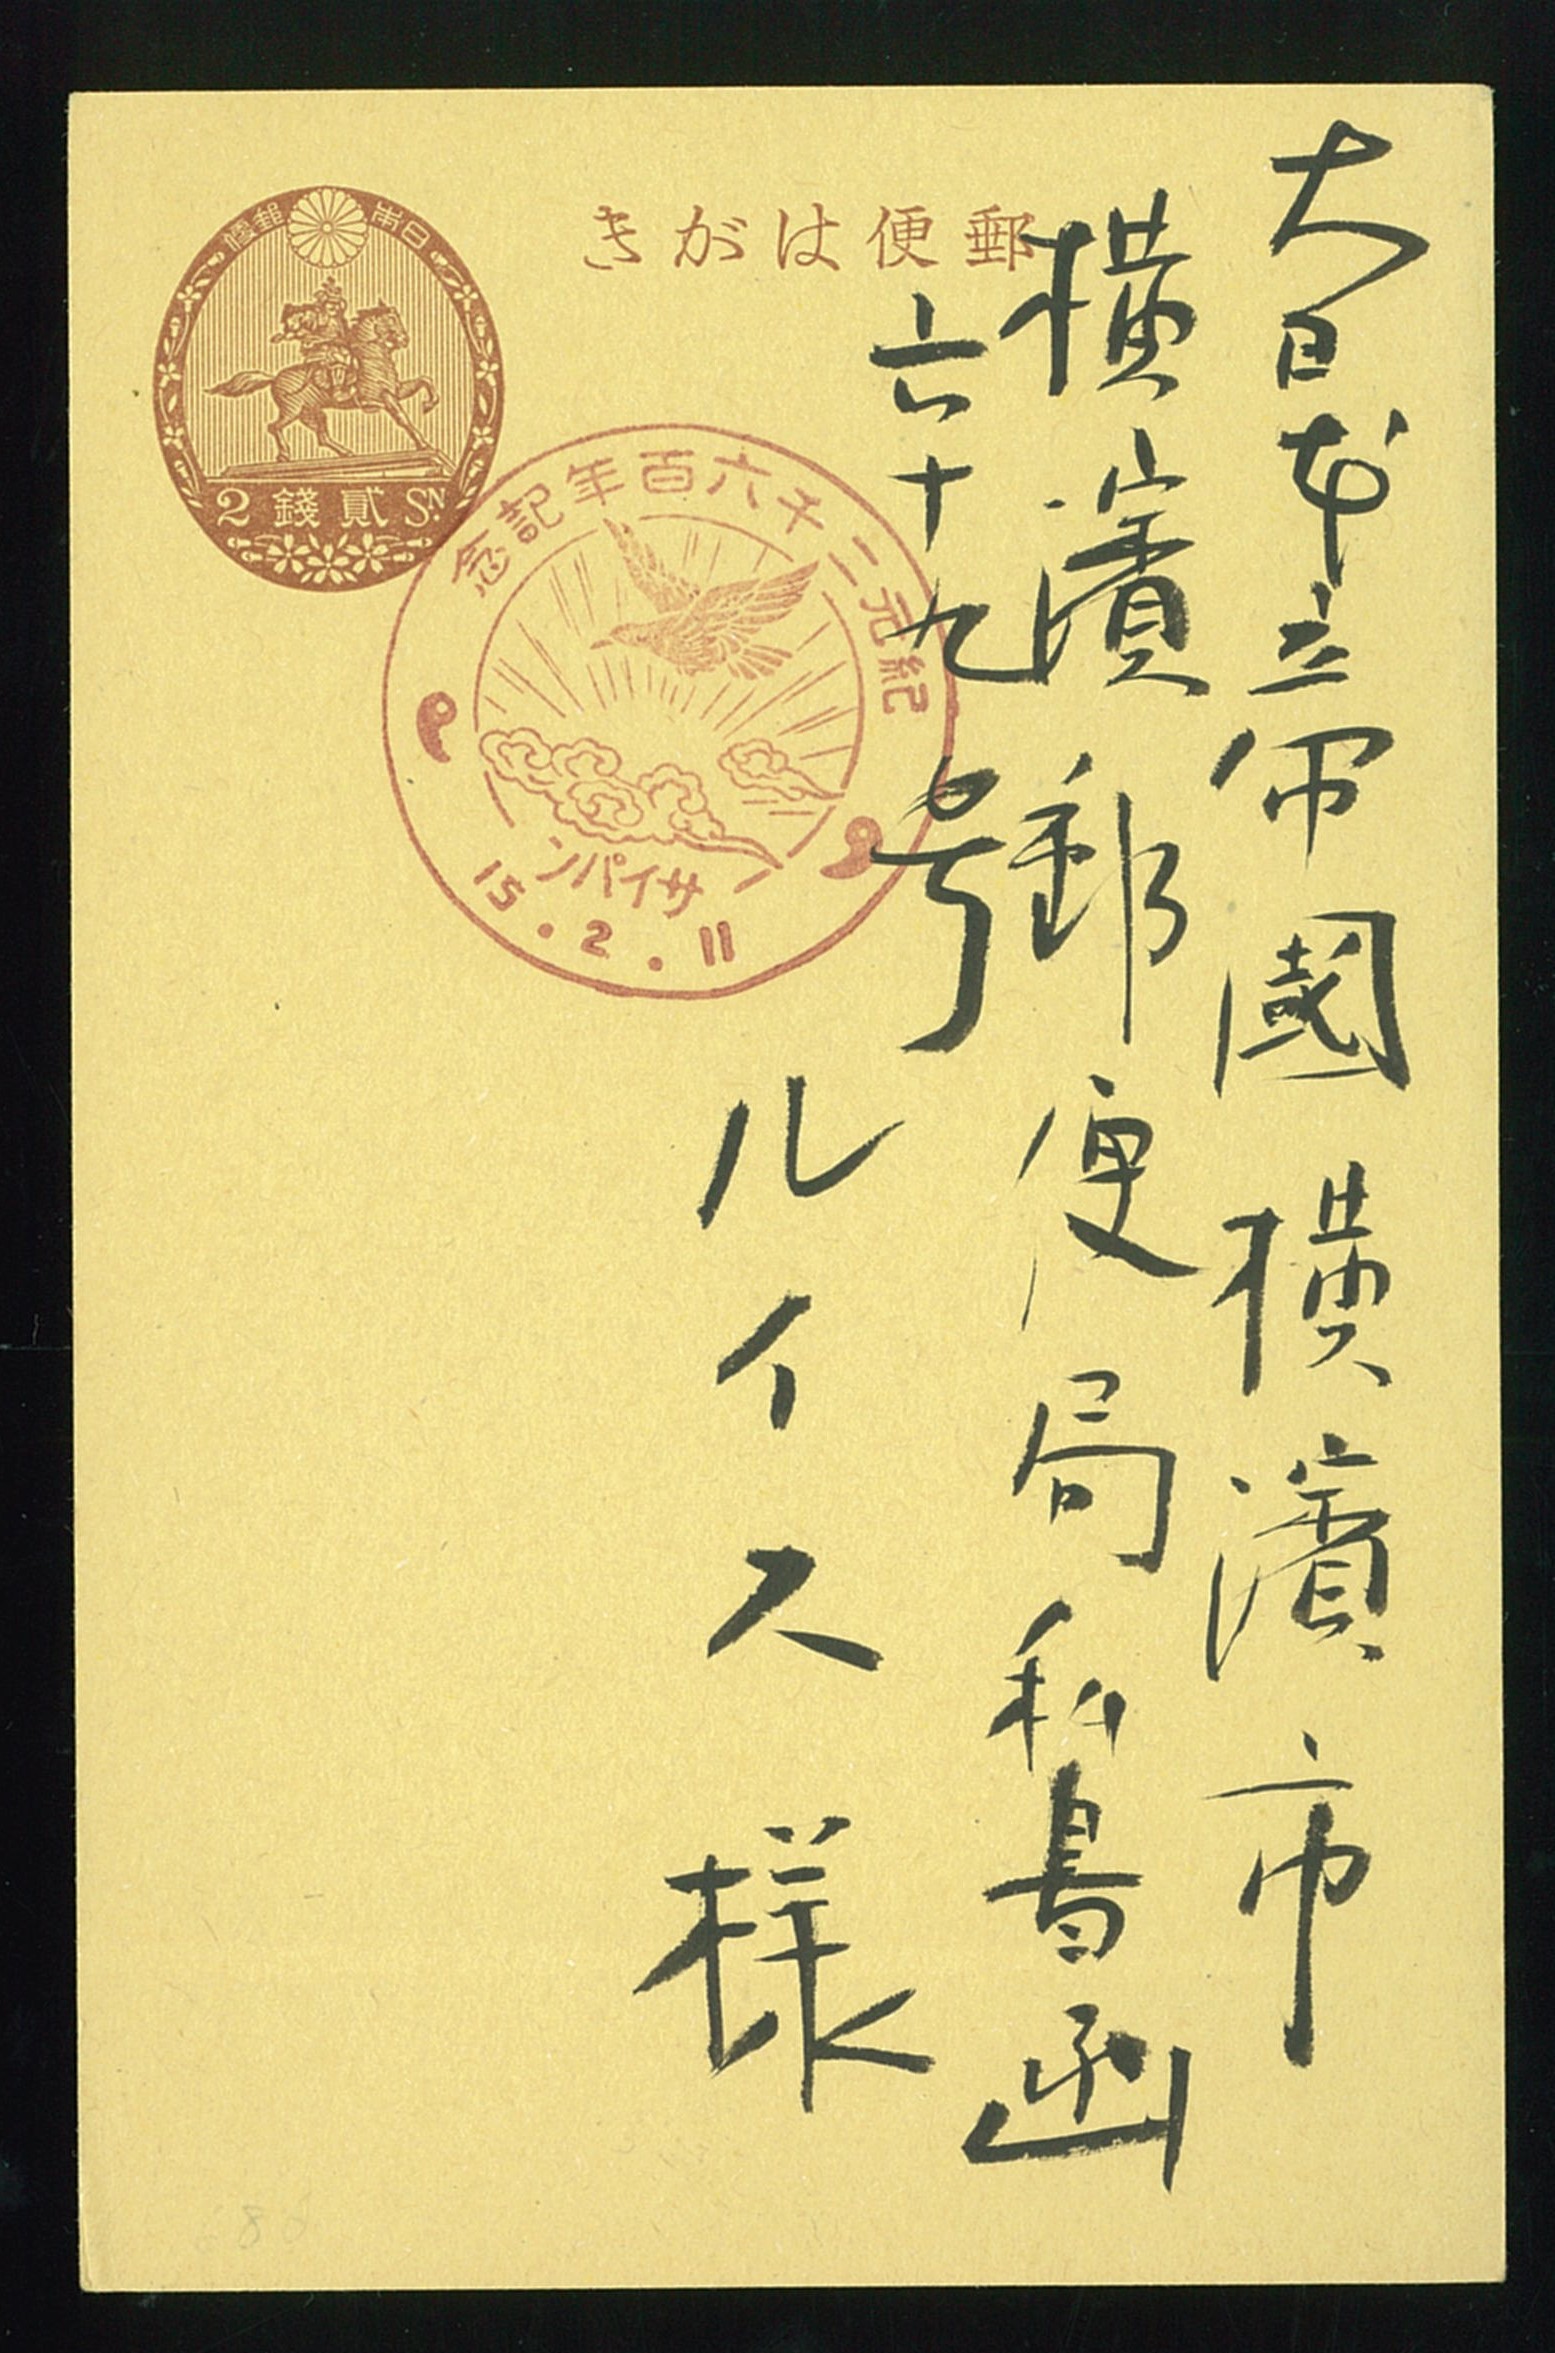 大日本帝國横濱市
横濱郵便局私書函
六十九号
ルイス様
郵便はがき
日本郵便
2 錢貳 SN.
紀元二千六百年記念
サイパン
15.2.11